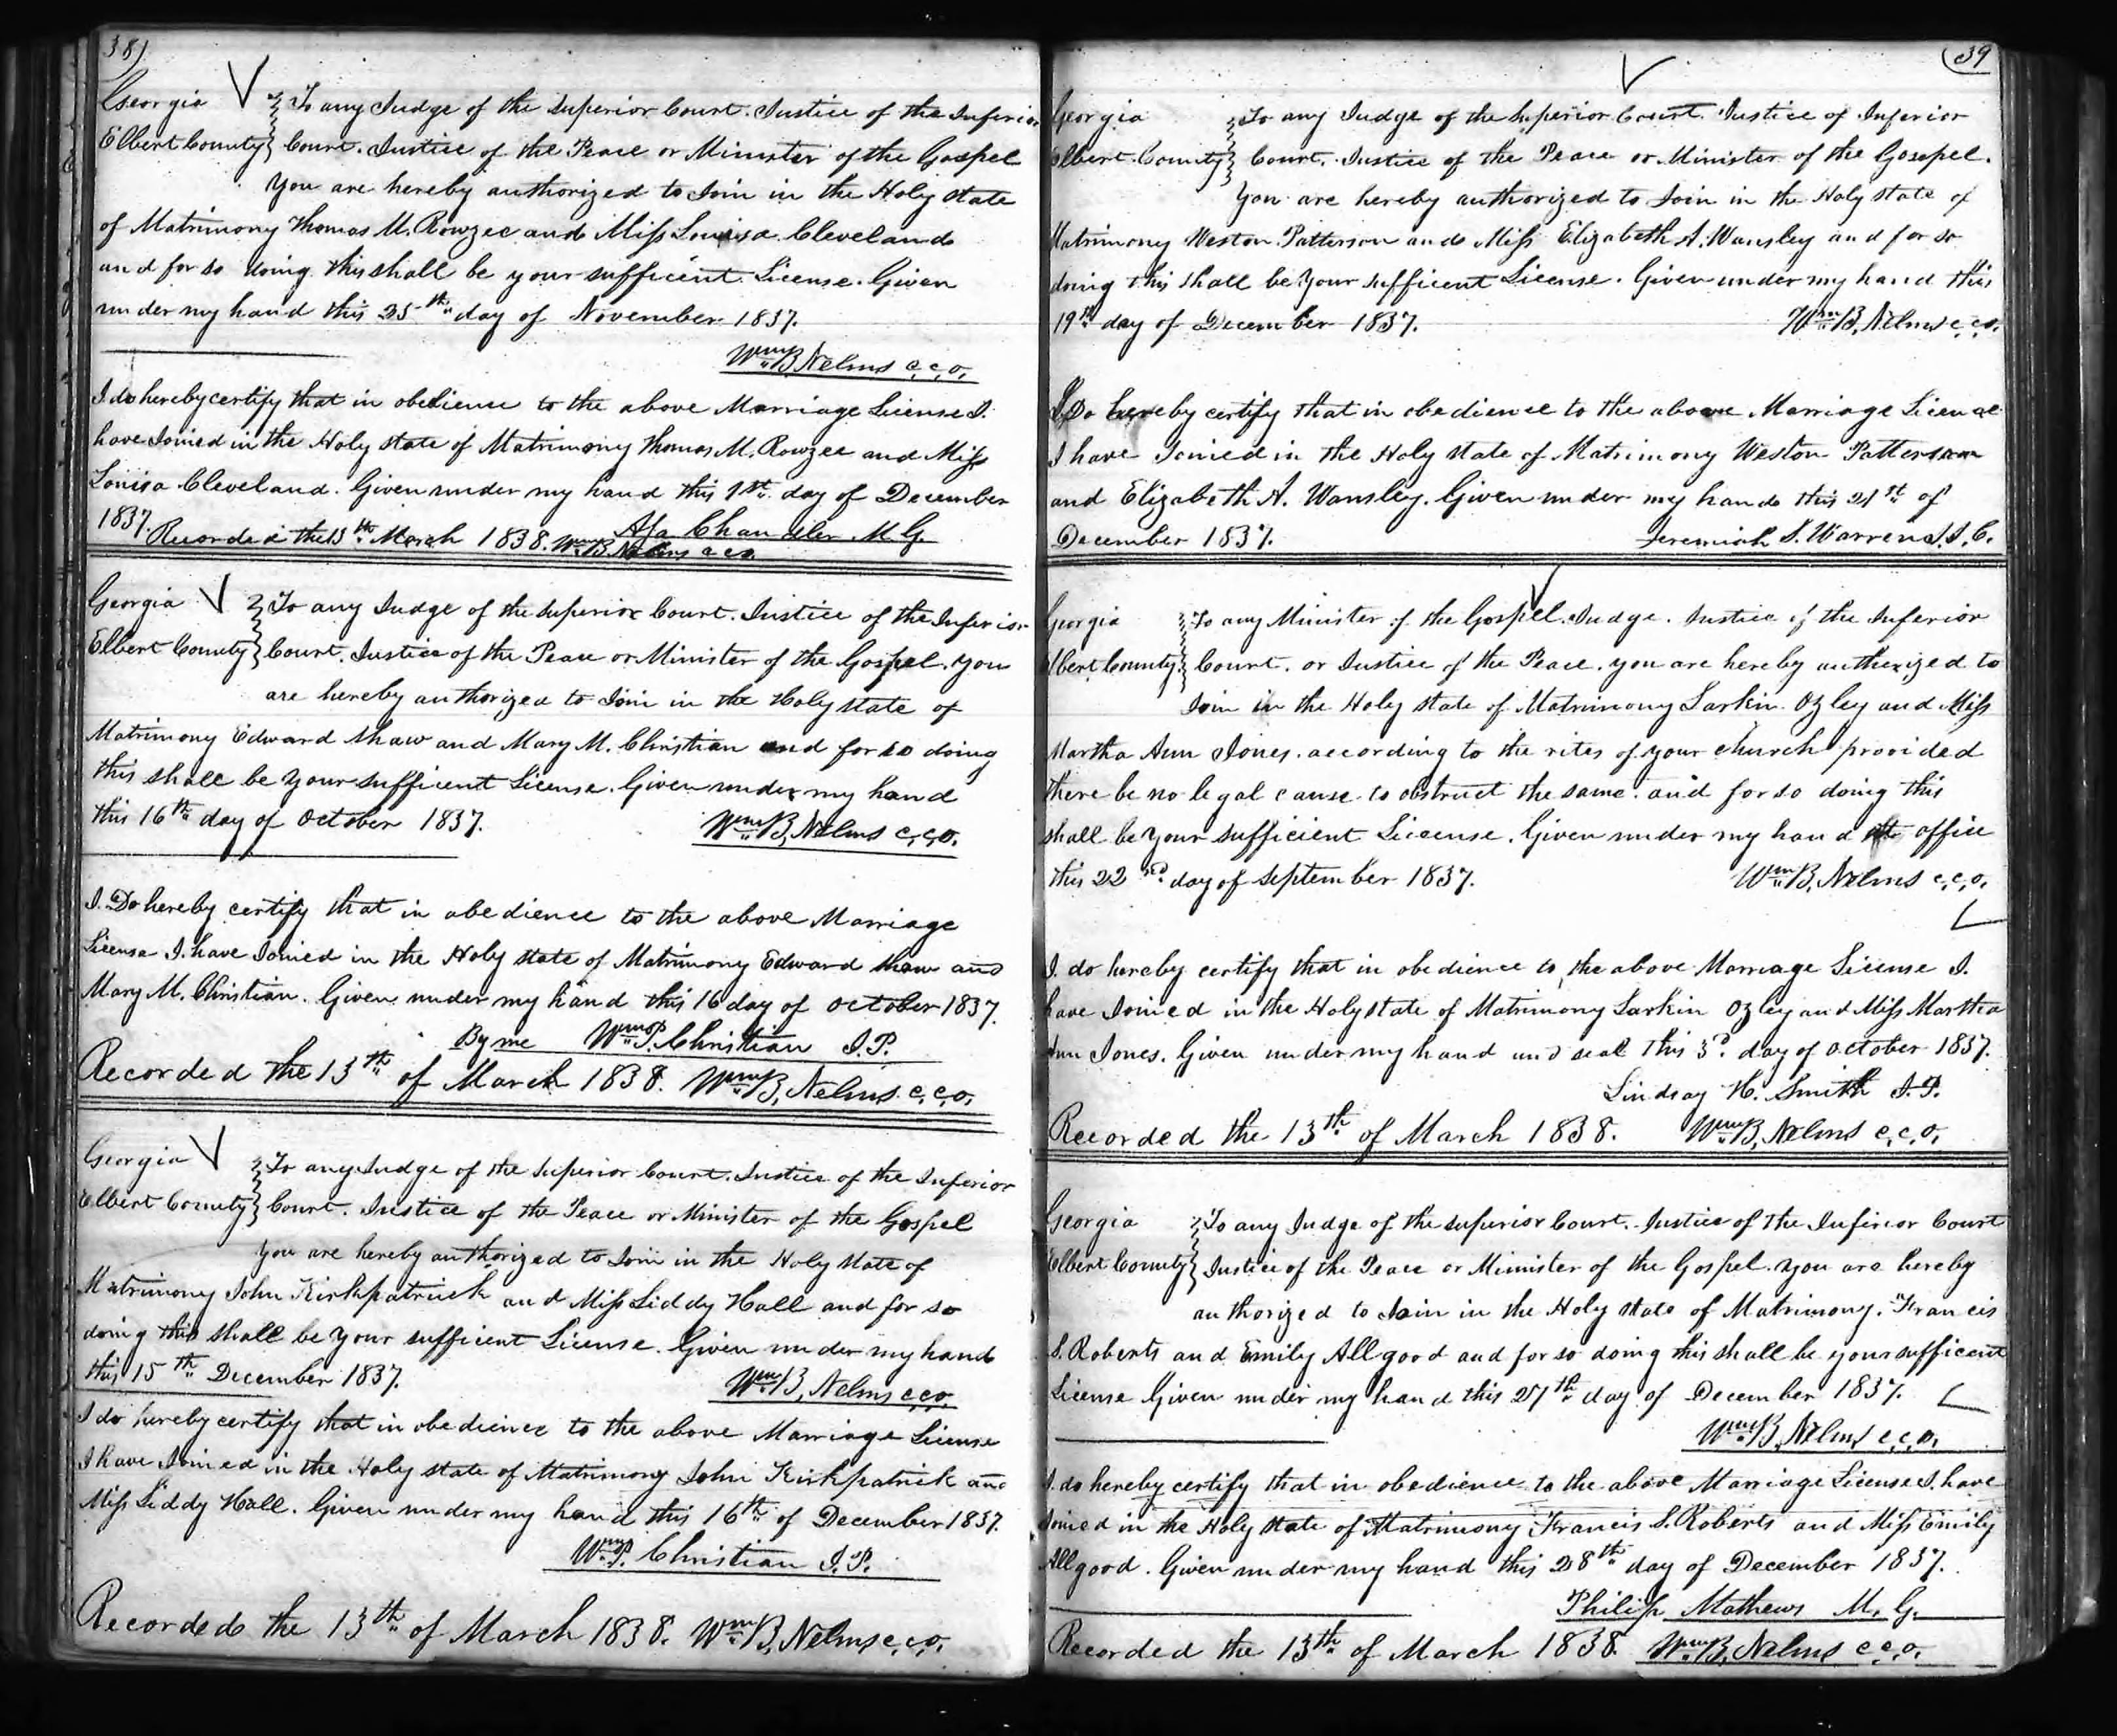 38)
Georgia } To any Judge of the Superior Court. Justice of the Inferior
Elbert County } Court. Justice of the Peace or Minister of the Gospel
You are hereby authorized to Join in the Holy state
of Matrimony Thomas M. Rowzee and Miss Louisa Cleveland
and for so doing this shall be your sufficient License. Given
under my hand this 25th day of November 1837.
Wm B, Nelms c,c,o,
I do hereby certify that in obedience to the above Marriage License I.
have Joined in the Holy state of Matrimony Thomas M. Rowzee and Miss
Louisa Cleveland. Given under my hand this 1st day of December
1837. Asa Chandler M. G.
Recorded the 13th March 1838. Wm B Nelms c c o.
Georgia } To any Judge of the Superior Court. Justice of the Inferior
Elbert County } Court. Justice of the Peace or Minister of the Gospel. You
are hereby authorized to Join in the Holy state of
Matrimony Edward Shaw and Mary M. Christian and for so doing
this shall be your sufficient License. Given under my hand
this 16th day of October 1837. Wm B, Nelms c,c,o.
I. Do hereby certify that in obedience to the above Marriage
License I. have Joined in the Holy state of Matrimony Edward Shaw and
Mary M. Christian. Given under my hand this 16 day of October 1837.
By me Wm P. Christian J. P.
Recorded the 13th of March 1838. Wm B, Nelms. c, c, o,
Georgia } To any Judge of the Superior Court. Justice of the Inferior
Elbert County } Court. Justice of the Peace or Minister of the Gospel
You are hereby authorized to Join in the Holy state of
Matrimony John Kirkpatrick and Miss Liddy Hall and for so
doing this shall be your sufficient License. Given under my hand
this 15th December 1837. Wm B, Nelms c,c,o.
I do hereby certify that in obedience to the above Marriage License
I have Joined in the Holy state of Matrimony John Kirkpatrick and
Miss Liddy Hall. Given under my hand this 16th of December 1837.
Wm P. Christian J. P.
Recorded the 13th of March 1838. Wm B, Nelms c,c,o,
(39
Georgia } To any Judge of the Superior Court. Justice of Inferior
Elbert County } Court. Justice of the Peace or Minister of the Gosspel.
You are hereby authorized to Join in the Holy state of
Matrimony Weston Patterson and Miss Elizabeth A. Wansley and for so
doing this shall be your sufficient License. Given under my hand this
19th day of December 1837. Wm B, Nelms c, c,o,
I, Do hereby certify that in obedience to the above Marriage License
I have Joined in the Holy state of Matrimony Weston Patterson
and Elizabeth A. Wansley. Given under my hand this 21st of
December 1837. Jeremiah S. Warren J. I. C.
Georgia } To any Minister of the Gospel. Judge. Justice of the Inferior
Elbert County } Court. or Justice of the Peace. you are hereby authorized to
Join in the Holy state of Matrimony Larkin Ozley and Miss
Martha Ann Jones. according to the rites of your church provided
there be no legal cause to obstruct the same. and for so doing this
shall be your sufficient License. Given under my hand office
this 22nd day of September 1837. Wm B, Nelms c,c,o,
I. do hereby certify that in obedience to the above Marriage License I.
have Joined in the Holy state of Matrimony Larkin Ozley and Miss Martha
Ann Jones. Given under my hand and seal this 3d day of October 1837.
Lindsay H. Smith J. P.
Recorded the 13th of March 1838. Wm B, Nelms c,c,o,
Georgia } To any Judge of the Superior Court. Justice of the Inferior Court
Elbert County } Justice of the Peace or Minister of the Gospel. You are hereby
authorized to Join in the Holy state of Matrimony. Francis
S. Roberts and Emily Allgood and for so doing this shall be your sufficient
License Given under my hand this 27th day of December 1837.
Wm B, Nelms c,c,o,
I. do hereby certify that in obedience to the above Marriage License I. have
Joined in the Holy state of Matrimony Francis S. Roberts and Miss Emily
Allgood. Given under my hand this 28th day of December 1837.
Philip Mathews M. G.
Recorded the 13th of March 1838. Wm B, Nelms c,c,o,